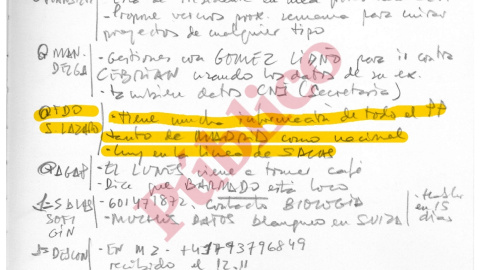 - Propone vernos prox. semana para mirar
proyectos de cualquier tipo
@ MAN. - Gestiones con GOMEZ LIDÑO para ir contra
DELGA CEBRIAN usando los datos de su ex.
- también datos CNI (Secretaria)
@ TDO - tiene mucha información de todo el PP
S LAZARO tanto de MADRID como nacional
- Muy en la línea de SALAS
@ AGAP - El LUNES viene a tomar café
- Dice que BARNADO está loco
SALAS - 601471872. Contacto BIOLOGIA
SOFI - MUCHOS DATOS blanqueo en SUIZA
GIN en 15 días
- EN M2 - +41793796849
recibido el 12.11
Público